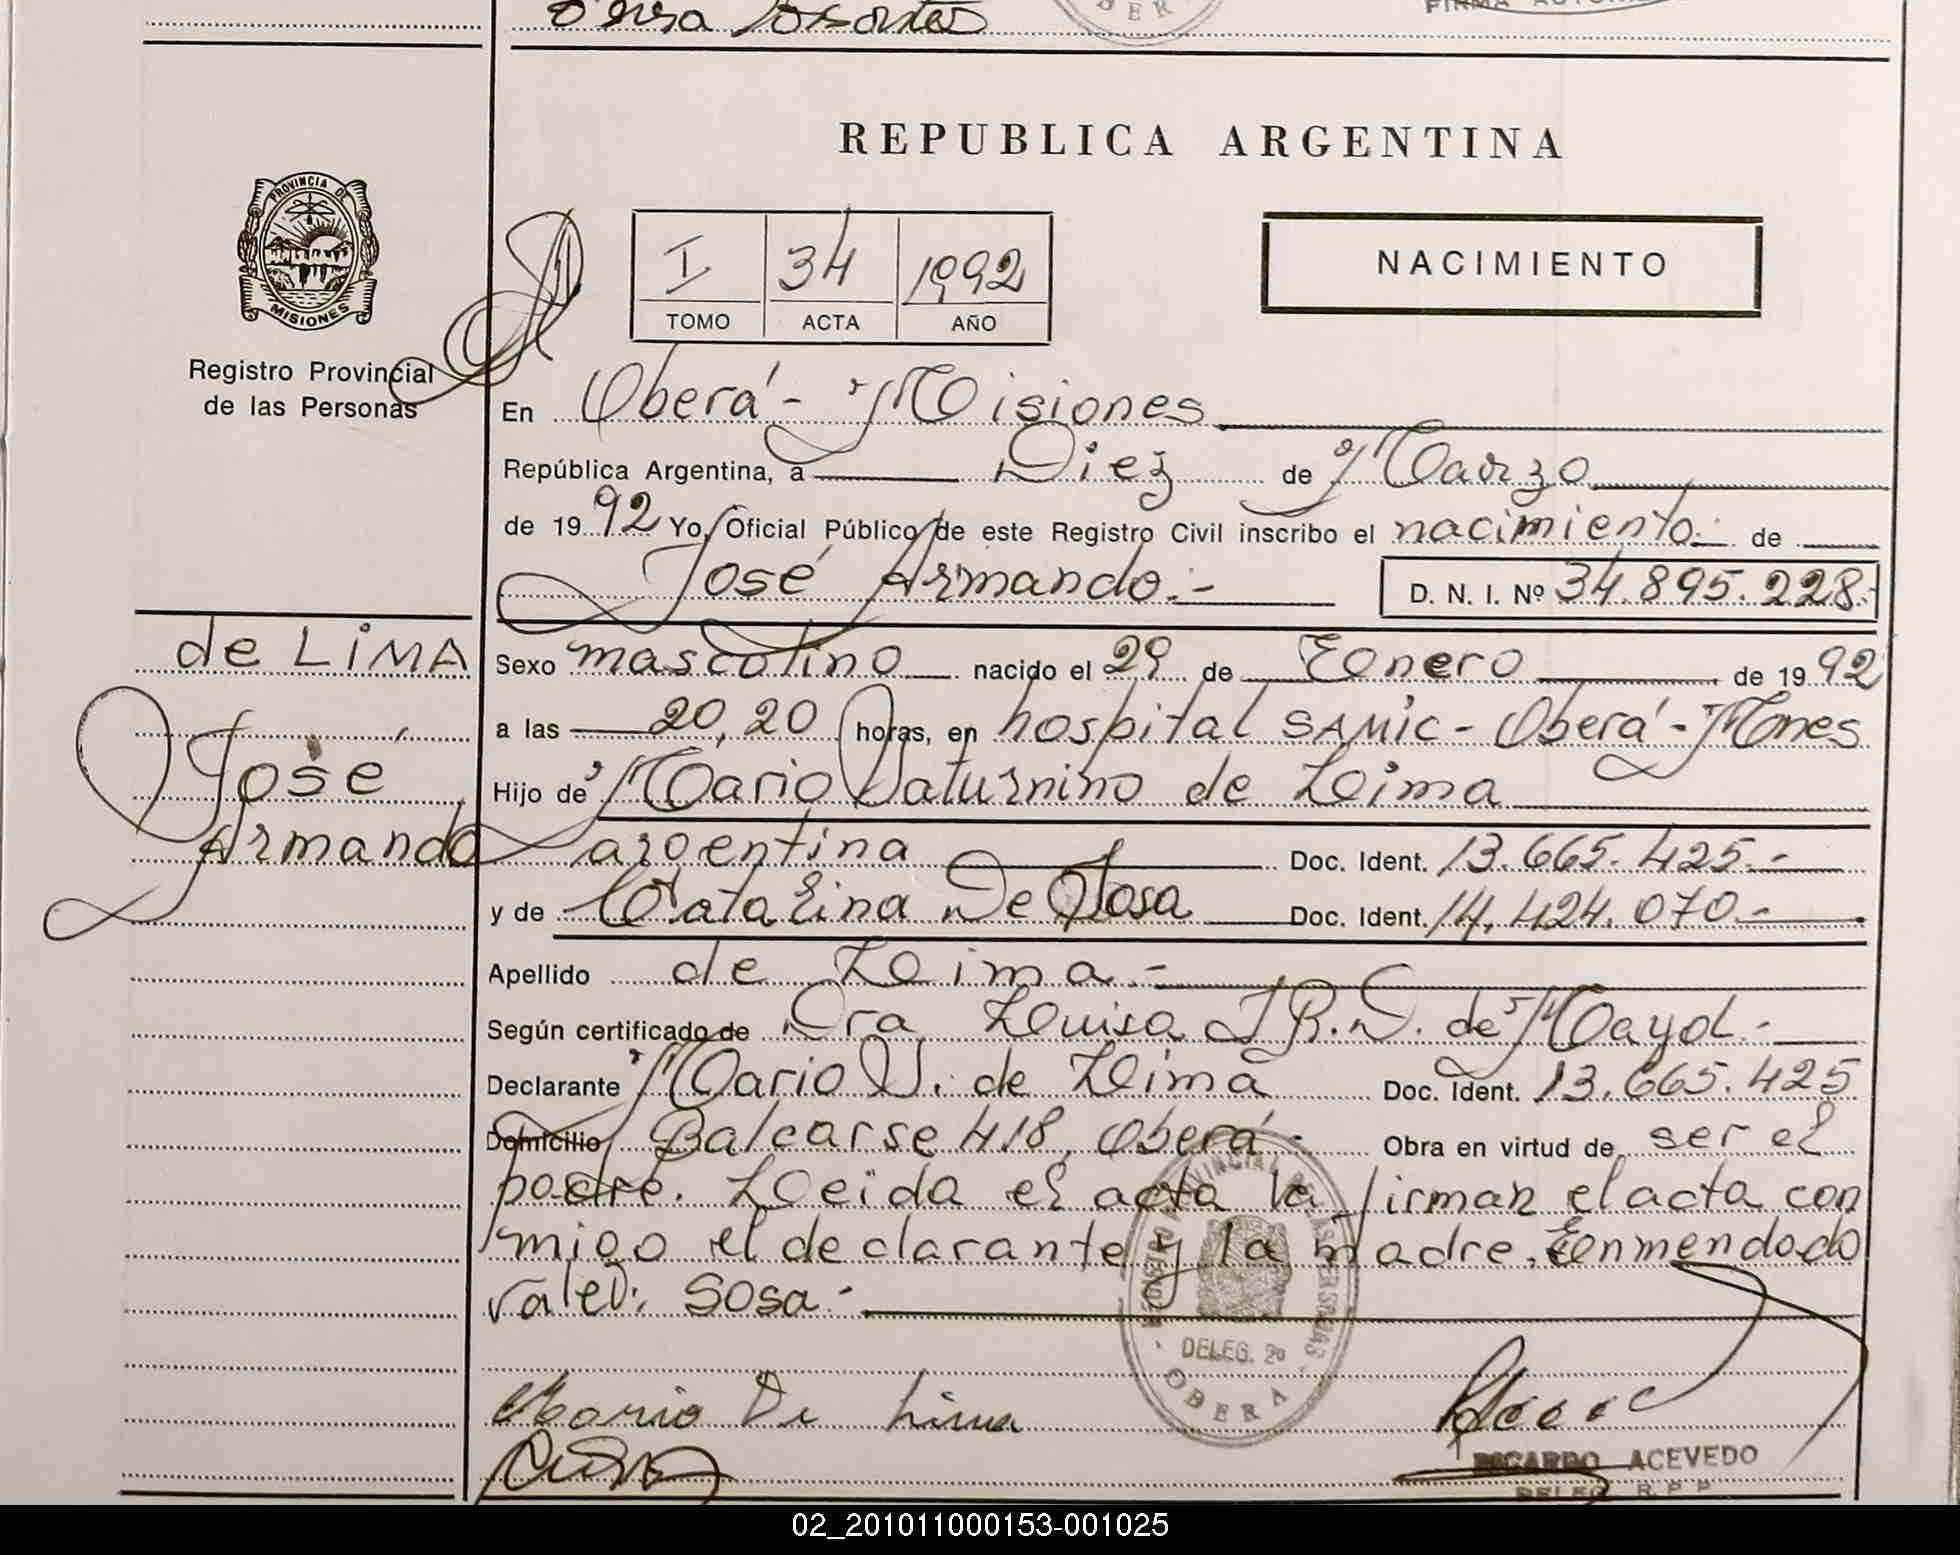 PROVINCIA DE
MISIONES
Registro Provincial
de las Personas
de LIMA
José
Armando
REPUBLICA ARGENTINA
I 34 1992
TOMO ACTA AÑO
NACIMIENTO
En Oberá - Misiones
República Argentina, a Diez de Marzo
de 1992 Yo, Oficial Público de este Registro Civil inscribo el nacimiento.- de
José Armando.- D. N. I. Nº 34.895.228.-
Sexo mascolino nacido el 29 de Enero de 1992
a las 20,20 horas, en hospital SAMIC - Oberá - Mnes
Hijo de Mario Saturnino de Lima
argentina Doc. Ident. 13.665.425.-
y de Catalina De Sosa Doc. Ident. 14.424.070.-
Apellido de Lima.-
Según certificado de Dra Luisa I.R.D. de Mayol.-
Declarante Mario S. de Lima Doc. Ident. 13.665.425
Domicilio Balcarse 418, Oberá - Obra en virtud de ser el
padre. Leida el acta la firman el acta con
migo el declarante y la madre. Enmendado
vale: Sosa.-
DELEG. 2º
OBERA
Mario De Lima
RICARDO ACEVEDO
DELEG. R. P. P.
02_201011000153-001025